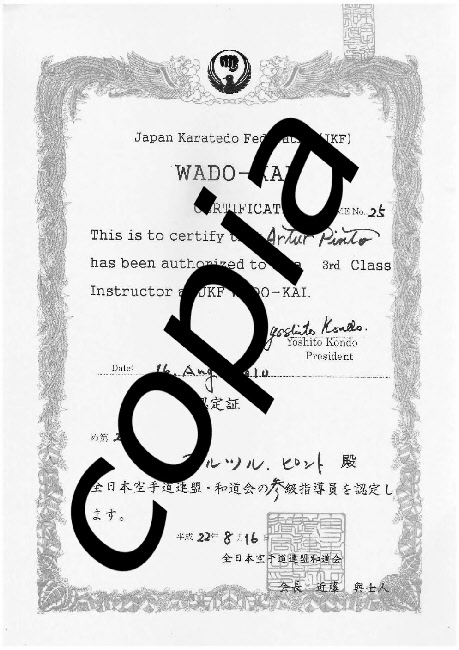 Japan Karatedo (JKF)
WADO-KAI
CERTIFICAT No. 25
This is to certify Artur Pinto
has been authorized to 3rd Class
Instructor JKF WADO-KAI.
Yoshito Kondo.
Yoshito Kondo
President
Date: 16. Aug
定証
第
ルツル.ピント 殿
全日本空手道連盟・和道会の参級指導員を認定し
ます。
平成 22年 8月16
全日本空手道連盟和道会
会長 近藤 與士人
copia